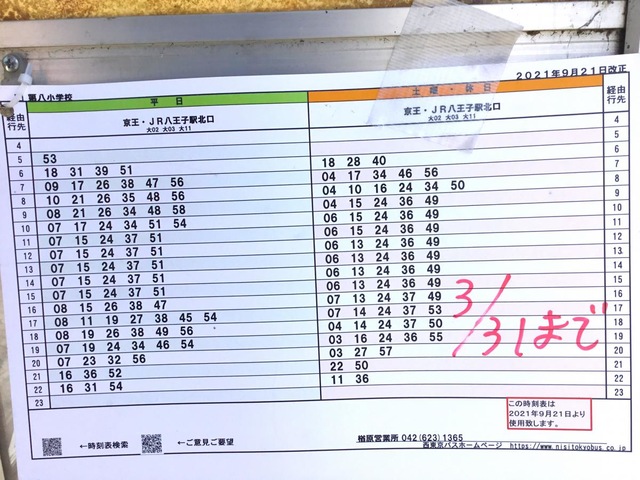 2021年9月21日改正
第八小学校
経由
行先
平 日
土曜・休日
経由
行先
京王・JR八王子駅北口
大02 大03 大11
京王・JR八王子駅北口
大02 大03 大11
4 4
5 53 5
6 18 31 39 51 18 28 40 6
7 09 17 26 38 47 56 04 17 34 46 56 7
8 10 21 26 35 48 56 04 10 16 24 34 50 8
9 08 21 26 34 48 58 04 15 24 36 49 9
10 07 17 24 34 51 54 06 15 24 36 49 10
11 07 15 24 37 51 06 15 24 36 49 11
12 07 15 24 37 51 06 13 24 36 49 12
13 07 15 24 37 51 06 13 24 36 49 13
14 07 15 24 37 51 06 13 24 36 49 14
15 07 15 24 37 51 06 13 24 36 49 15
16 08 15 26 38 47 07 13 24 37 49 16
17 08 11 19 27 38 45 54 07 14 24 37 53 17
18 08 19 26 38 49 56 04 14 24 37 50 18
19 07 19 24 34 46 54 03 16 24 36 55 19
20 07 23 32 56 03 27 57 20
21 16 36 52 22 50 21
22 16 31 54 11 36 22
23 23
3/31まで
この時刻表は
2021年9月21日より
使用致します。
←時刻表検索
←ご意見ご要望
楢原営業所 042(623)1365
西東京バスホームページ https://www.nisitokyobus.co.jp